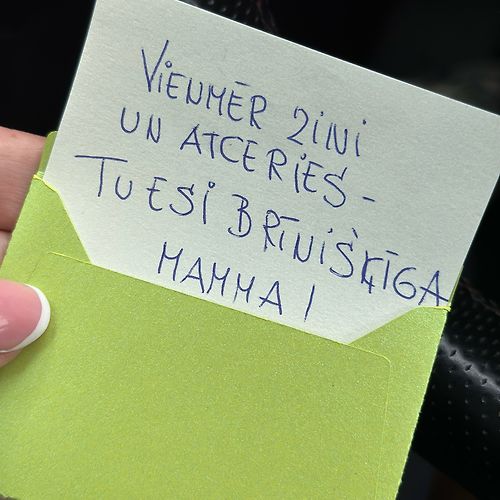 VIENMĒR ZINI
UN ATCERIES -
TU ESI BRĪNIŠĶĪGA
MAMMA!